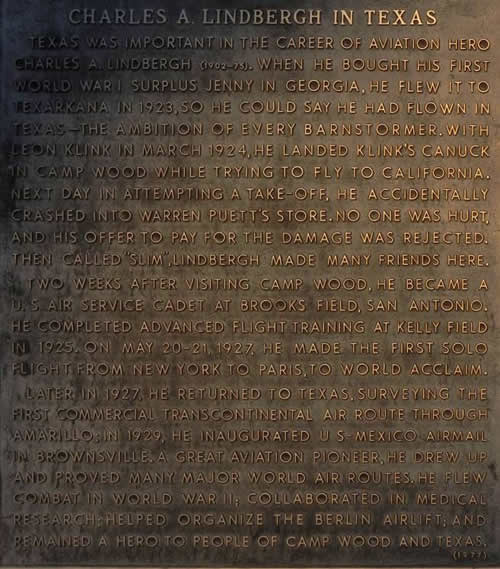 CHARLES A. LINDBERGH IN TEXAS
TEXAS WAS IMPORTANT IN THE CAREER OF AVIATION HERO
CHARLES A. LINDBERGH (1902-75). WHEN HE BOUGHT HIS FIRST
WORLD WAR I SURPLUS JENNY IN GEORGIA, HE FLEW IT TO
TEXARKANA IN 1923, SO HE COULD SAY HE HAD FLOWN IN
TEXAS—THE AMBITION OF EVERY BARNSTORMER. WITH
LEON KLINK IN MARCH 1924, HE LANDED KLINK'S CANUCK
IN CAMP WOOD WHILE TRYING TO FLY TO CALIFORNIA.
NEXT DAY IN ATTEMPTING A TAKE-OFF, HE ACCIDENTALLY
CRASHED INTO WARREN PUETT'S STORE. NO ONE WAS HURT,
AND HIS OFFER TO PAY FOR THE DAMAGE WAS REJECTED.
THEN CALLED "SLIM", LINDBERGH MADE MANY FRIENDS HERE.
TWO WEEKS AFTER VISITING CAMP WOOD, HE BECAME A
U. S. AIR SERVICE CADET AT BROOKS FIELD, SAN ANTONIO.
HE COMPLETED ADVANCED FLIGHT TRAINING AT KELLY FIELD
IN 1925. ON MAY 20-21, 1927, HE MADE THE FIRST SOLO
FLIGHT FROM NEW YORK TO PARIS, TO WORLD ACCLAIM.
LATER IN 1927, HE RETURNED TO TEXAS, SURVEYING THE
FIRST COMMERCIAL TRANSCONTINENTAL AIR ROUTE THROUGH
AMARILLO; IN 1929, HE INAUGURATED U S-MEXICO AIRMAIL
IN BROWNSVILLE. A GREAT AVIATION PIONEER, HE DREW UP
AND PROVED MANY MAJOR WORLD AIR ROUTES. HE FLEW
COMBAT IN WORLD WAR II; COLLABORATED IN MEDICAL
RESEARCH; HELPED ORGANIZE THE BERLIN AIRLIFT; AND
REMAINED A HERO TO PEOPLE OF CAMP WOOD AND TEXAS.
(1977)